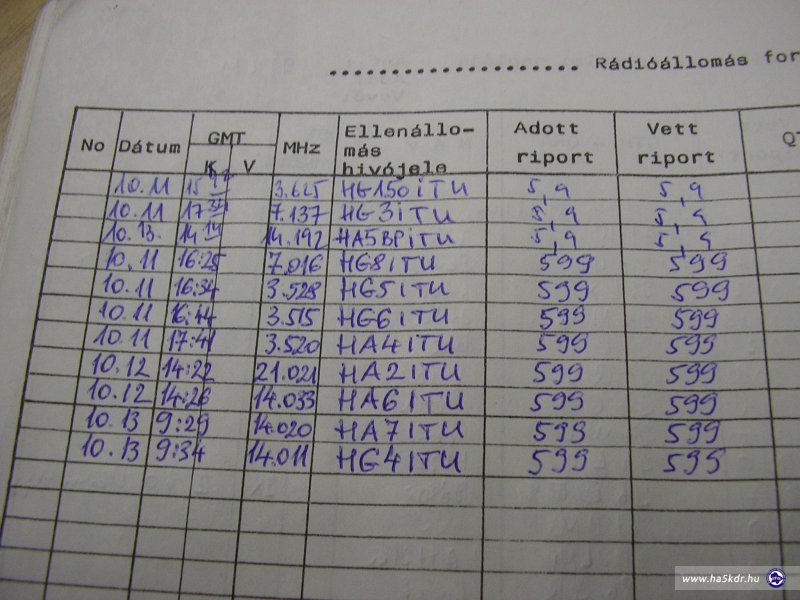 .................... Rádióállomás for
No Dátum GMT K V MHz Ellenállo-más hivójele Adott riport Vett riport
10.11 3.625 HG150ITU 5,9 5,9
10.11 7.137 HG3ITU 5,9 5,9
10.13. 14 14 14.192 HA5BPITU 5,9 5,9
10.11 16:25 7.016 HG8ITU 599 599
10.11 16:34 3.528 HG5ITU 599 599
10.11 16:44 3.515 HG6ITU 599 599
10.11 17:41 3.520 HA4ITU 599 599
10.12 14:22 21.021 HA2ITU 599 599
10.12 14:26 14.033 HA6ITU 599 599
10.13 9:29 14.020 HA7ITU 599 599
10.13 9:34 14.011 HG4ITU 599 599
www.ha5kdr.hu